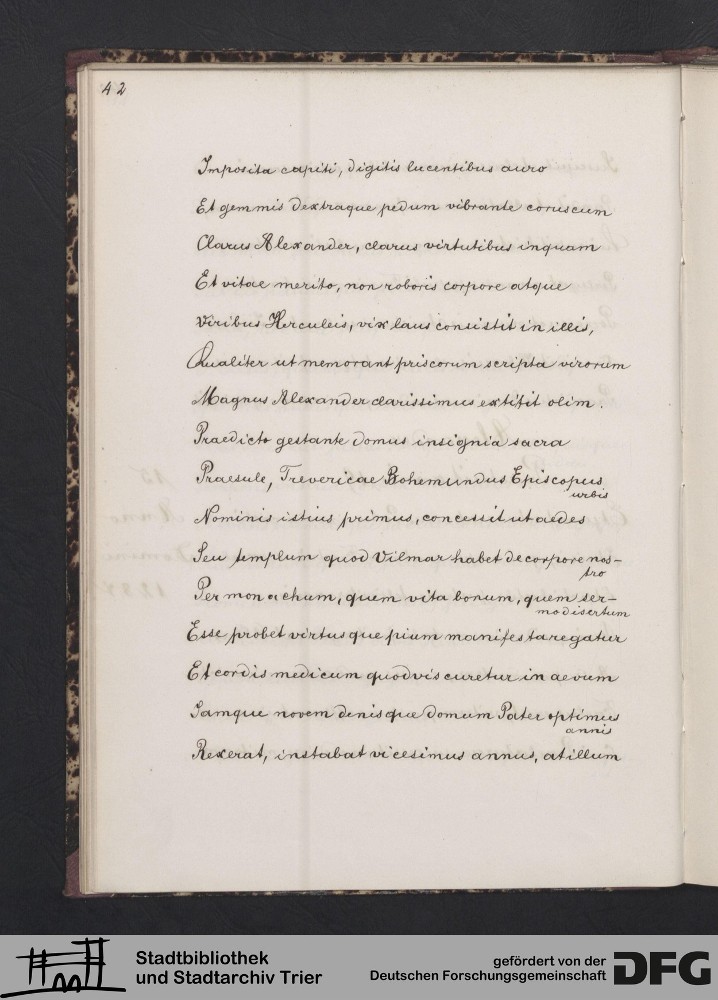 42
Imposita capiti, digitis lucentibus auro
Et gemmis dextraque pedum vibrante coruscum
Clarus Alexander, clarus virtutibus inquam
Et vitae merito, non roboris corpore atque
Viribus Herculeis, vix laus consistit in illis,
Qualiter ut memorant priscorum scripta virorum
Magnus Alexander clarissimus extitit olim.
Praedicto gestante domus insignia sacra
Praesule, Trevericae Bohemundus Episcopus
urbis
Nominis istius primus, concessit ut aedes
Seu templum quod Vilmar habet de corpore nos-
tro
Per monachum, quem vita bonum, quem ser-
mo disertum
Esse probet virtusque pium manifesta regatur
Et cordis medicum quodvis curetur in aevum
Iamque novem denisque domum Pater optimus
annis
Rexerat, instabat vicesimus annus, at illum
Stadtbibliothek
und Stadtarchiv Trier
gefördert von der
Deutschen Forschungsgemeinschaft
DFG